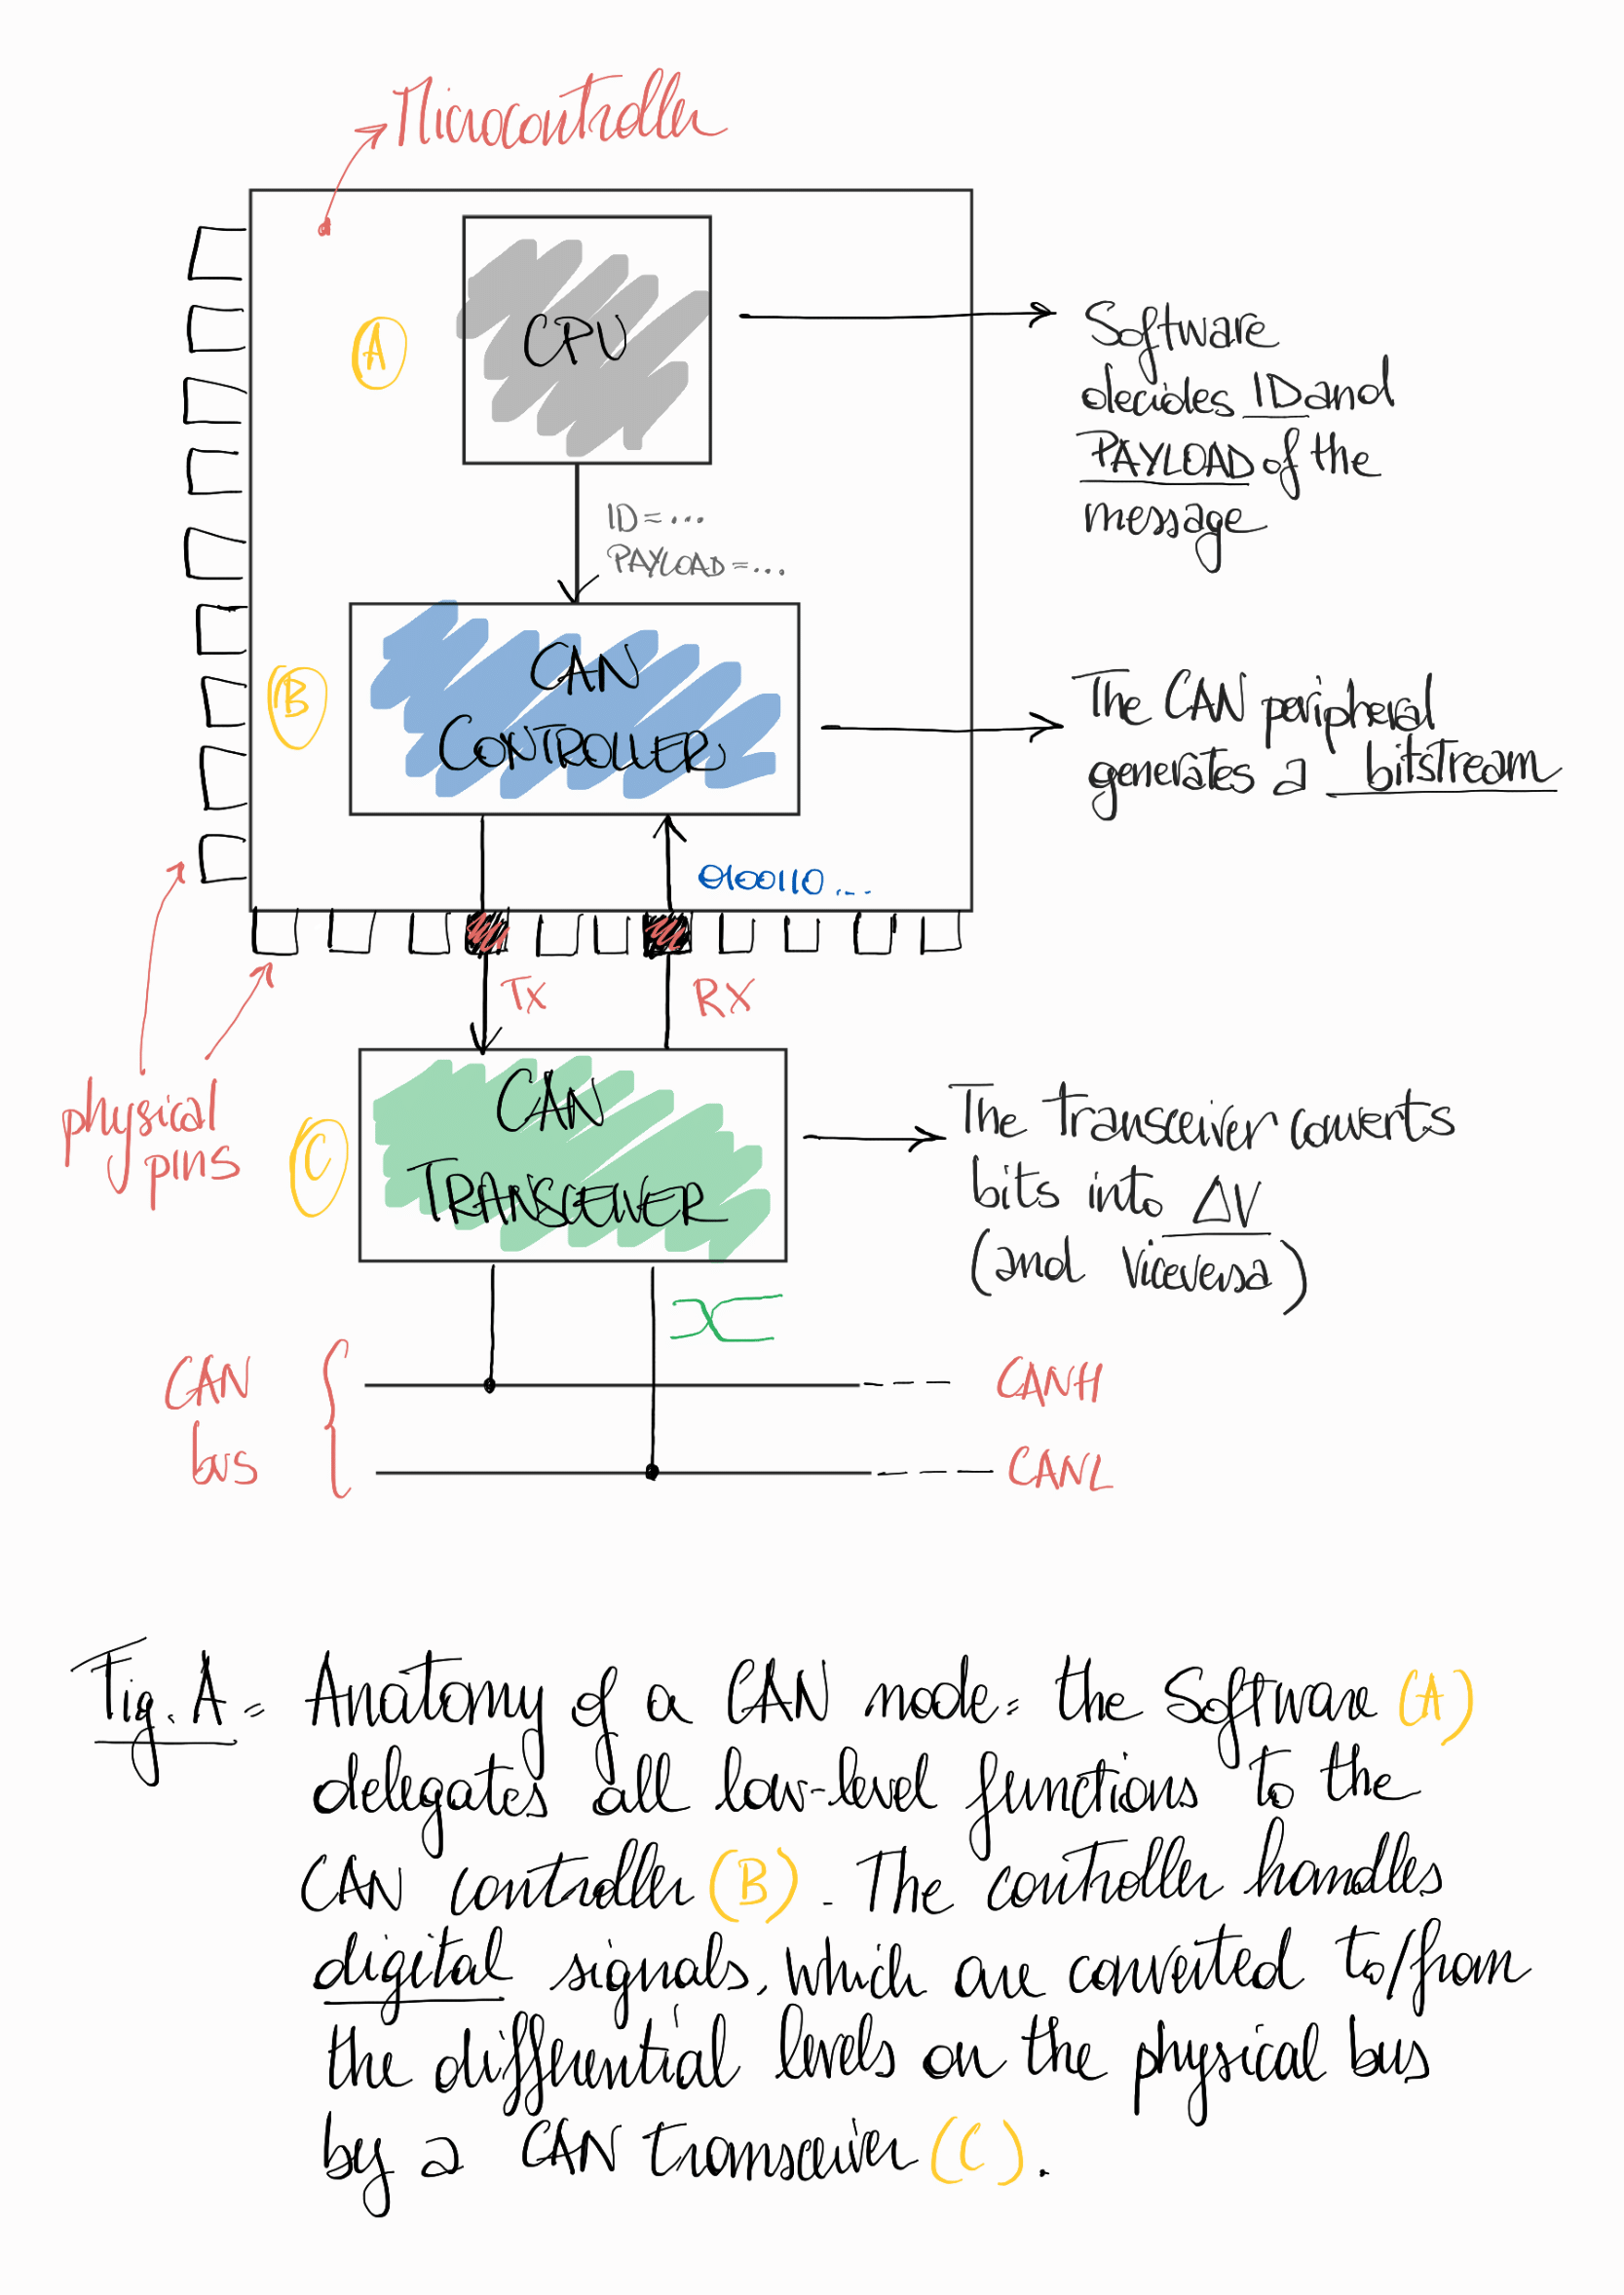 Microcontroller
A
CPU
Software
decides ID and
PAYLOAD of the
message
ID=...
PAYLOAD=...
B
CAN
CONTROLLER
The CAN peripheral
generates a bitstream
0100110...
TX
RX
physical
pins
C
CAN
TRANSCEIVER
The transceiver converts
bits into ΔV
(and viceversa)
CAN
bus
CANH
CANL
Fig. A = Anatomy of a CAN node: the Software (A)
delegates all low-level functions to the
CAN controller (B). The controller handles
digital signals, which are converted to/from
the differential levels on the physical bus
by a CAN transceiver (C).